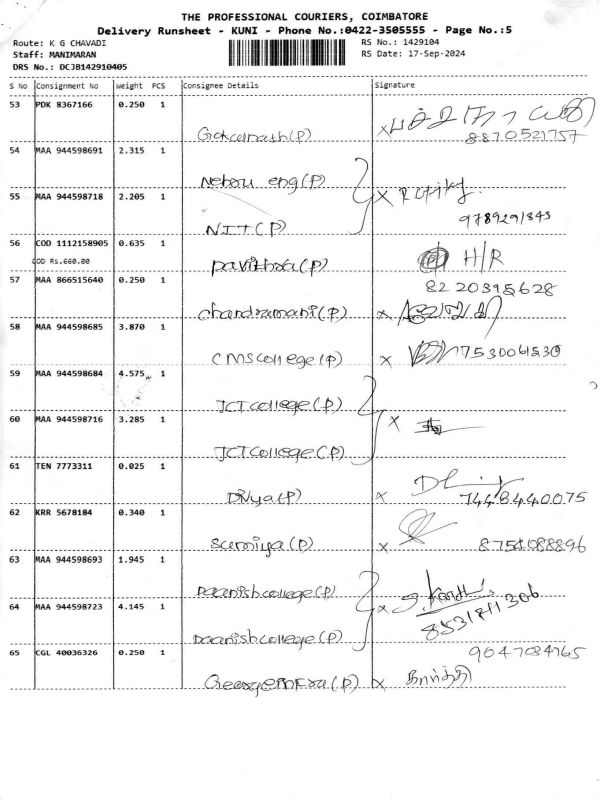 THE PROFESSIONAL COURIERS, COIMBATORE
Delivery Runsheet - KUNI - Phone No.:0422-3505555 - Page No.:5
Route: K G CHAVADI
RS No.: 1429104
Staff: MANIMARAN
RS Date: 17-Sep-2024
DRS No.: DCJB142910405
S No Consignment No weight PCS Consignee Details Signature
53 PDK 8367166 0.250 1
Gokulnath(P) x
8870521757
54 MAA 944598691 2.315 1
Nehru eng(P)
55 MAA 944598718 2.205 1 x
9789291843
NIT(P)
56 COD 1112158905 0.635 1
COD Rs.660.00
Pavithra(P) H/R
57 MAA 866515640 0.250 1 8220395628
chandramani(P) x
58 MAA 944598685 3.870 1
CMS college(P) x 7530061530
59 MAA 944598684 4.575 1
JCT college(P)
60 MAA 944598716 3.285 1 x
JCT college(P)
61 TEN 7773311 0.025 1
Divya(P) x 7448440075
62 KRR 5678184 0.340 1
Sumiya(P) x 8754088896
63 MAA 944598693 1.945 1
Daanish college(P)
64 MAA 944598723 4.145 1 x
8531811306
Daanish college(P)
65 CGL 40036326 0.250 1 9047084765
(P) x கார்த்தி